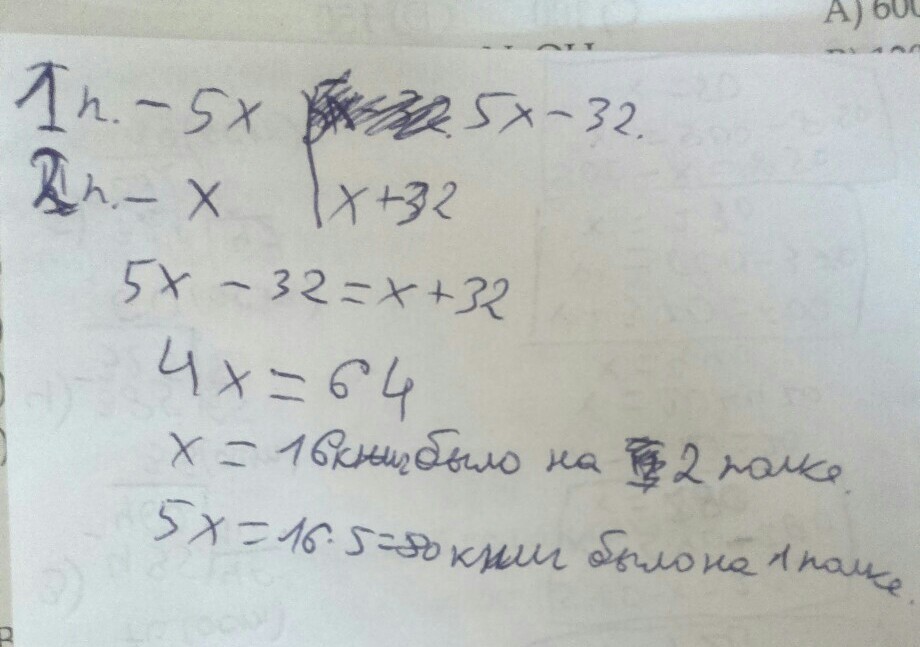 А) 600
1 п. - 5x 5x - 32.
2 п. - x x + 32
5x - 32 = x + 32
4x = 64
x = 16 книг было на 2 полке.
5x = 16 · 5 = 80 книг было на 1 полке.